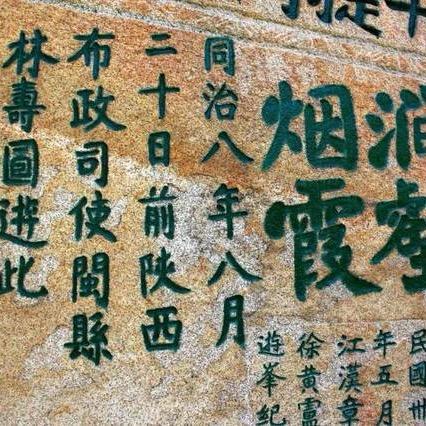 壑
烟霞
同治八年八月
二十日前陝西
布政司使閩縣
林壽圖遊此
民國卅
年五月
江漢章
徐黃憲
遊峯紀